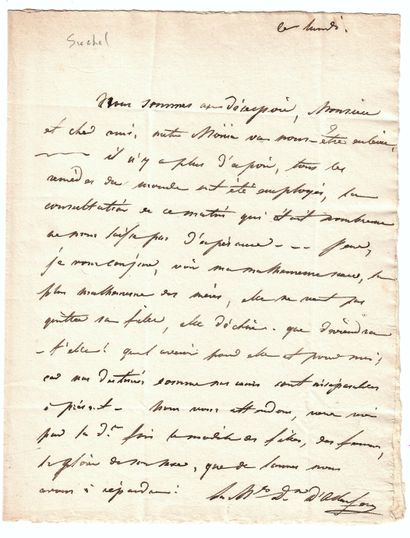 Suchel
ce lundi.
Nous sommes au désespoir, Monsieur
et cher ami, notre Moïna va nous être enlevée,
il n'y a plus d'espoir, tous les
remèdes du monde ont été employés, la
consultation de ce matin qui était nombreuse
ne nous laissa pas d'espérance - - -
je vous conjure, voir ma malheureuse soeur, la
plus malheureuse des mères, elle ne veut pas
quitter sa fille, elle déchire. que deviendra
-t-elle! quel avenir pour elle et pour moi,
car nos destinées comme nos coeurs sont inséparables
à présent - Nous vous attendons, venez voir
par la d.re fois le modèle des filles, des femmes,
la gloire de son sexe, que de larmes nous
avons à répandre!
La M.se